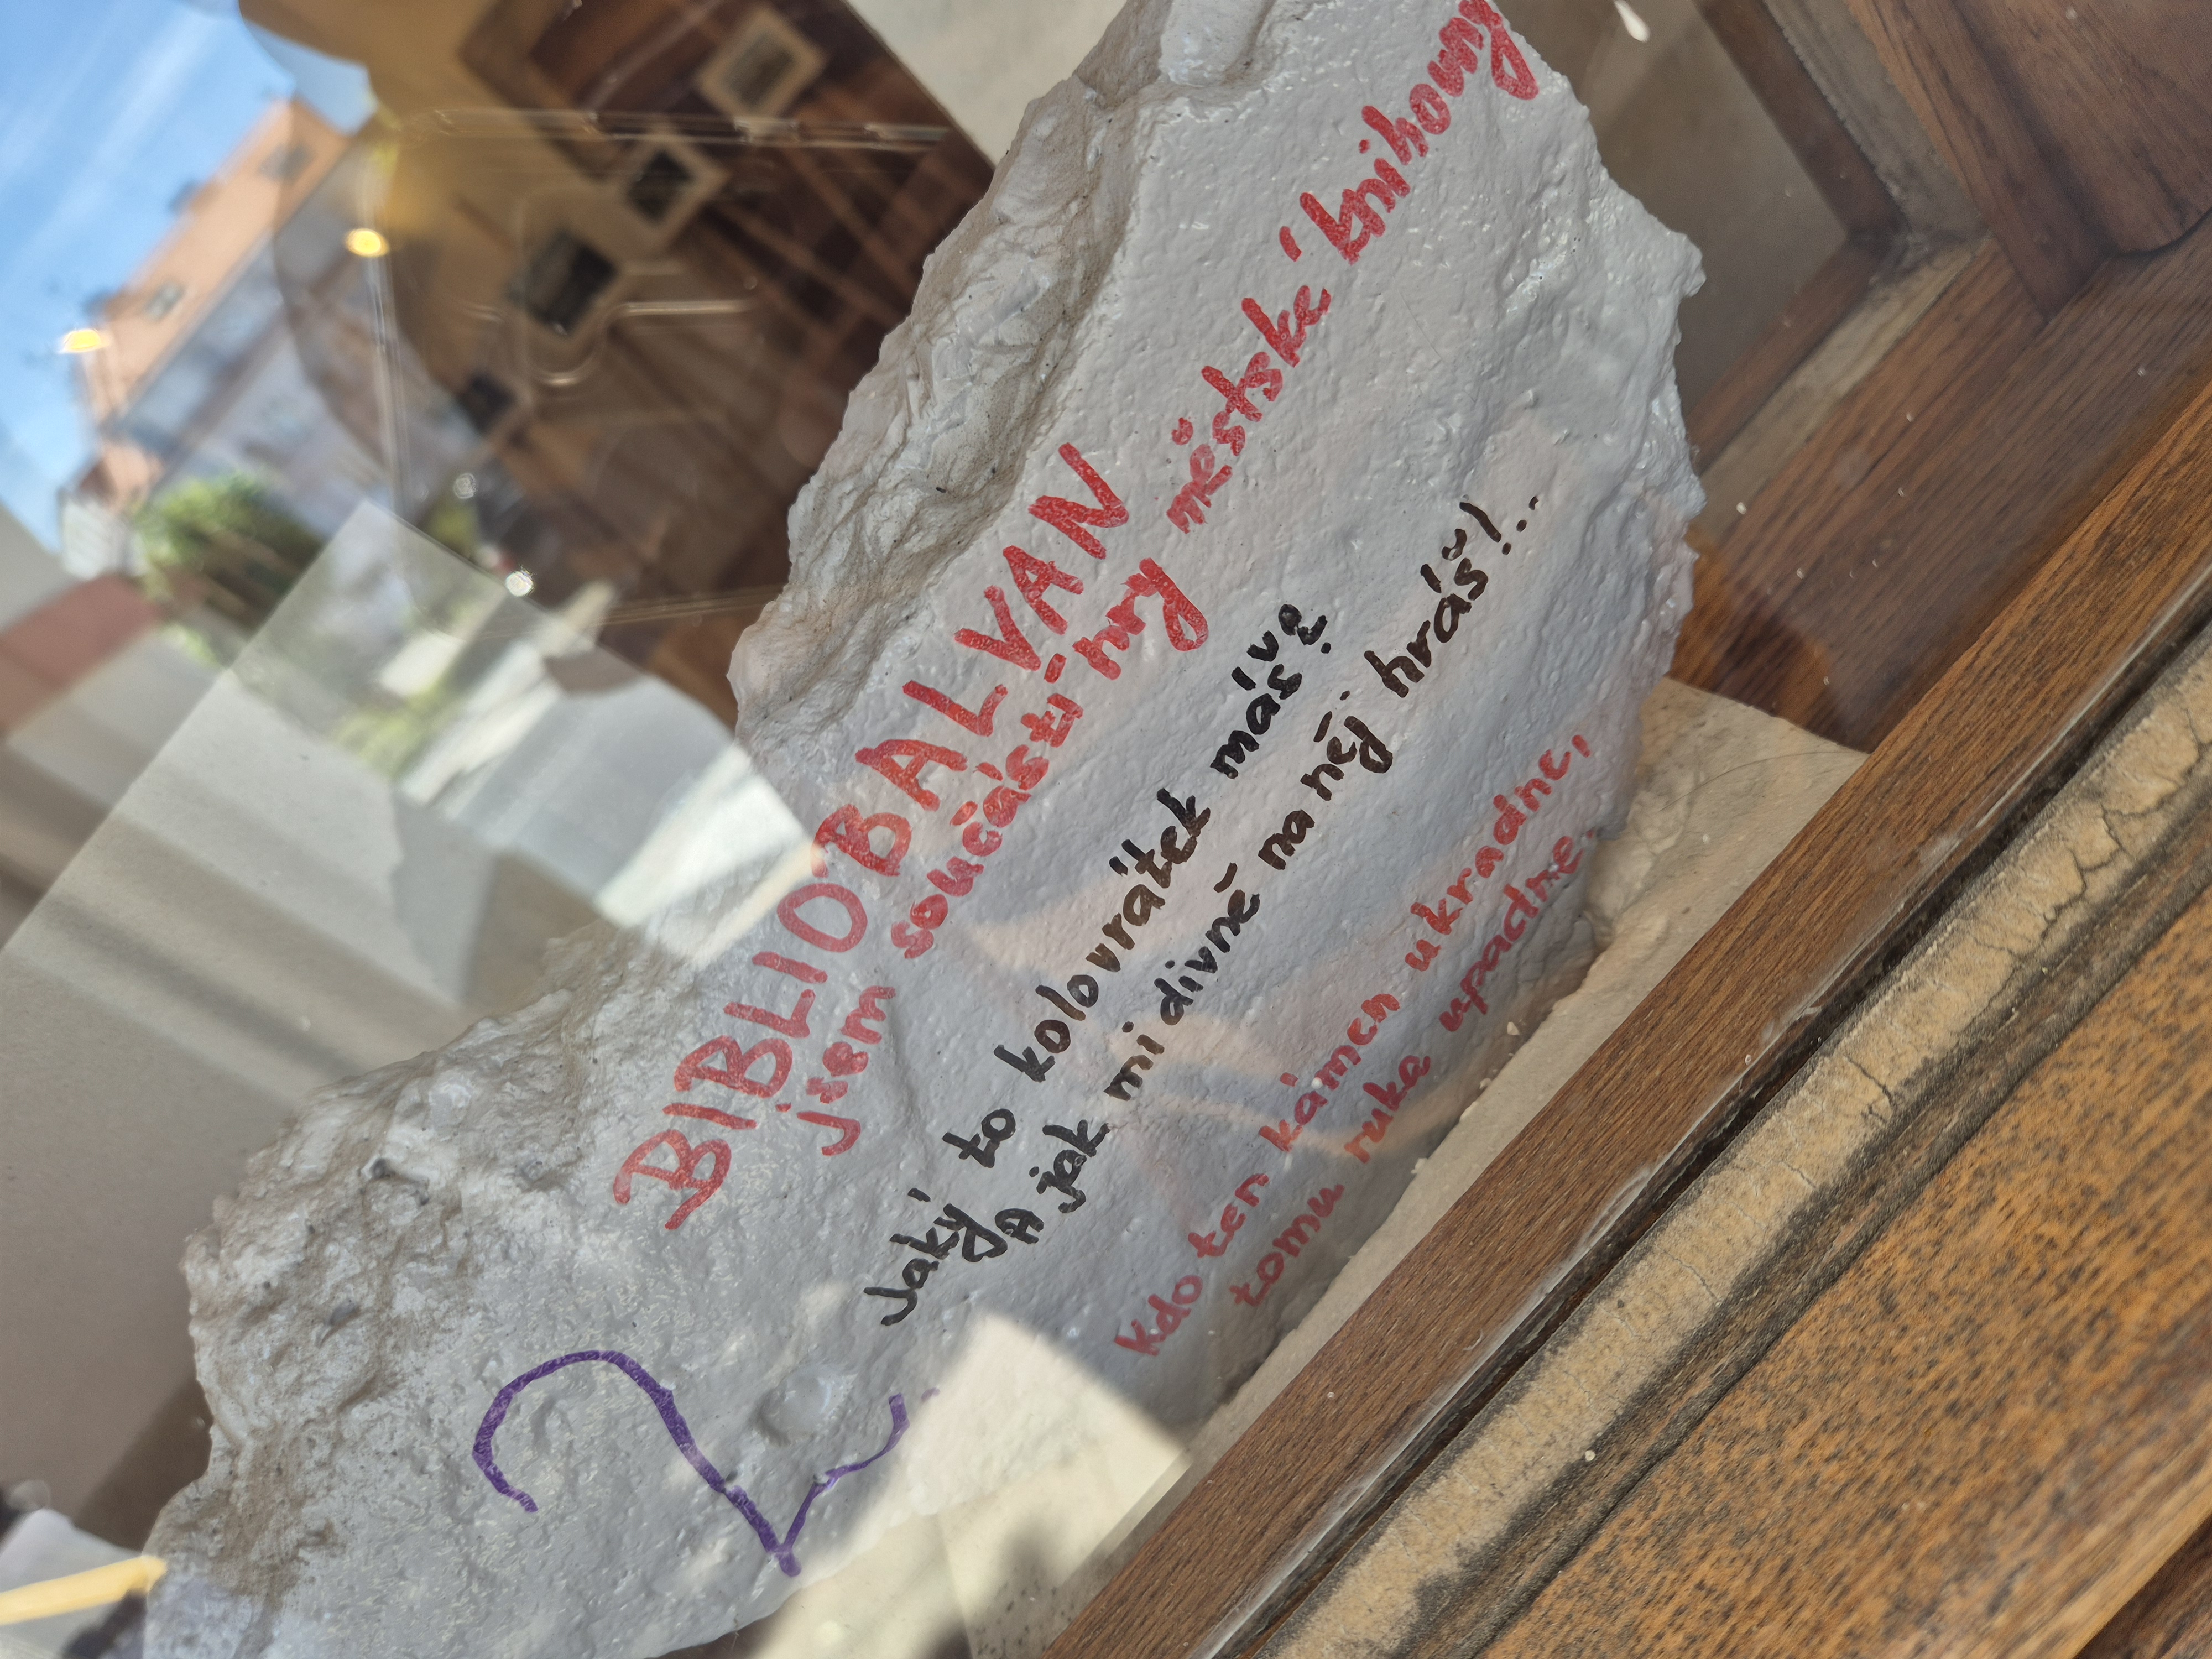 BIBLIOBALVAN
jsem součástí hry městské knihovny
2.
Jaký to kolovrátek máš?
A jak mi divně na něj hráš!..
Kdo ten kámen ukradne,
tomu ruka upadne.